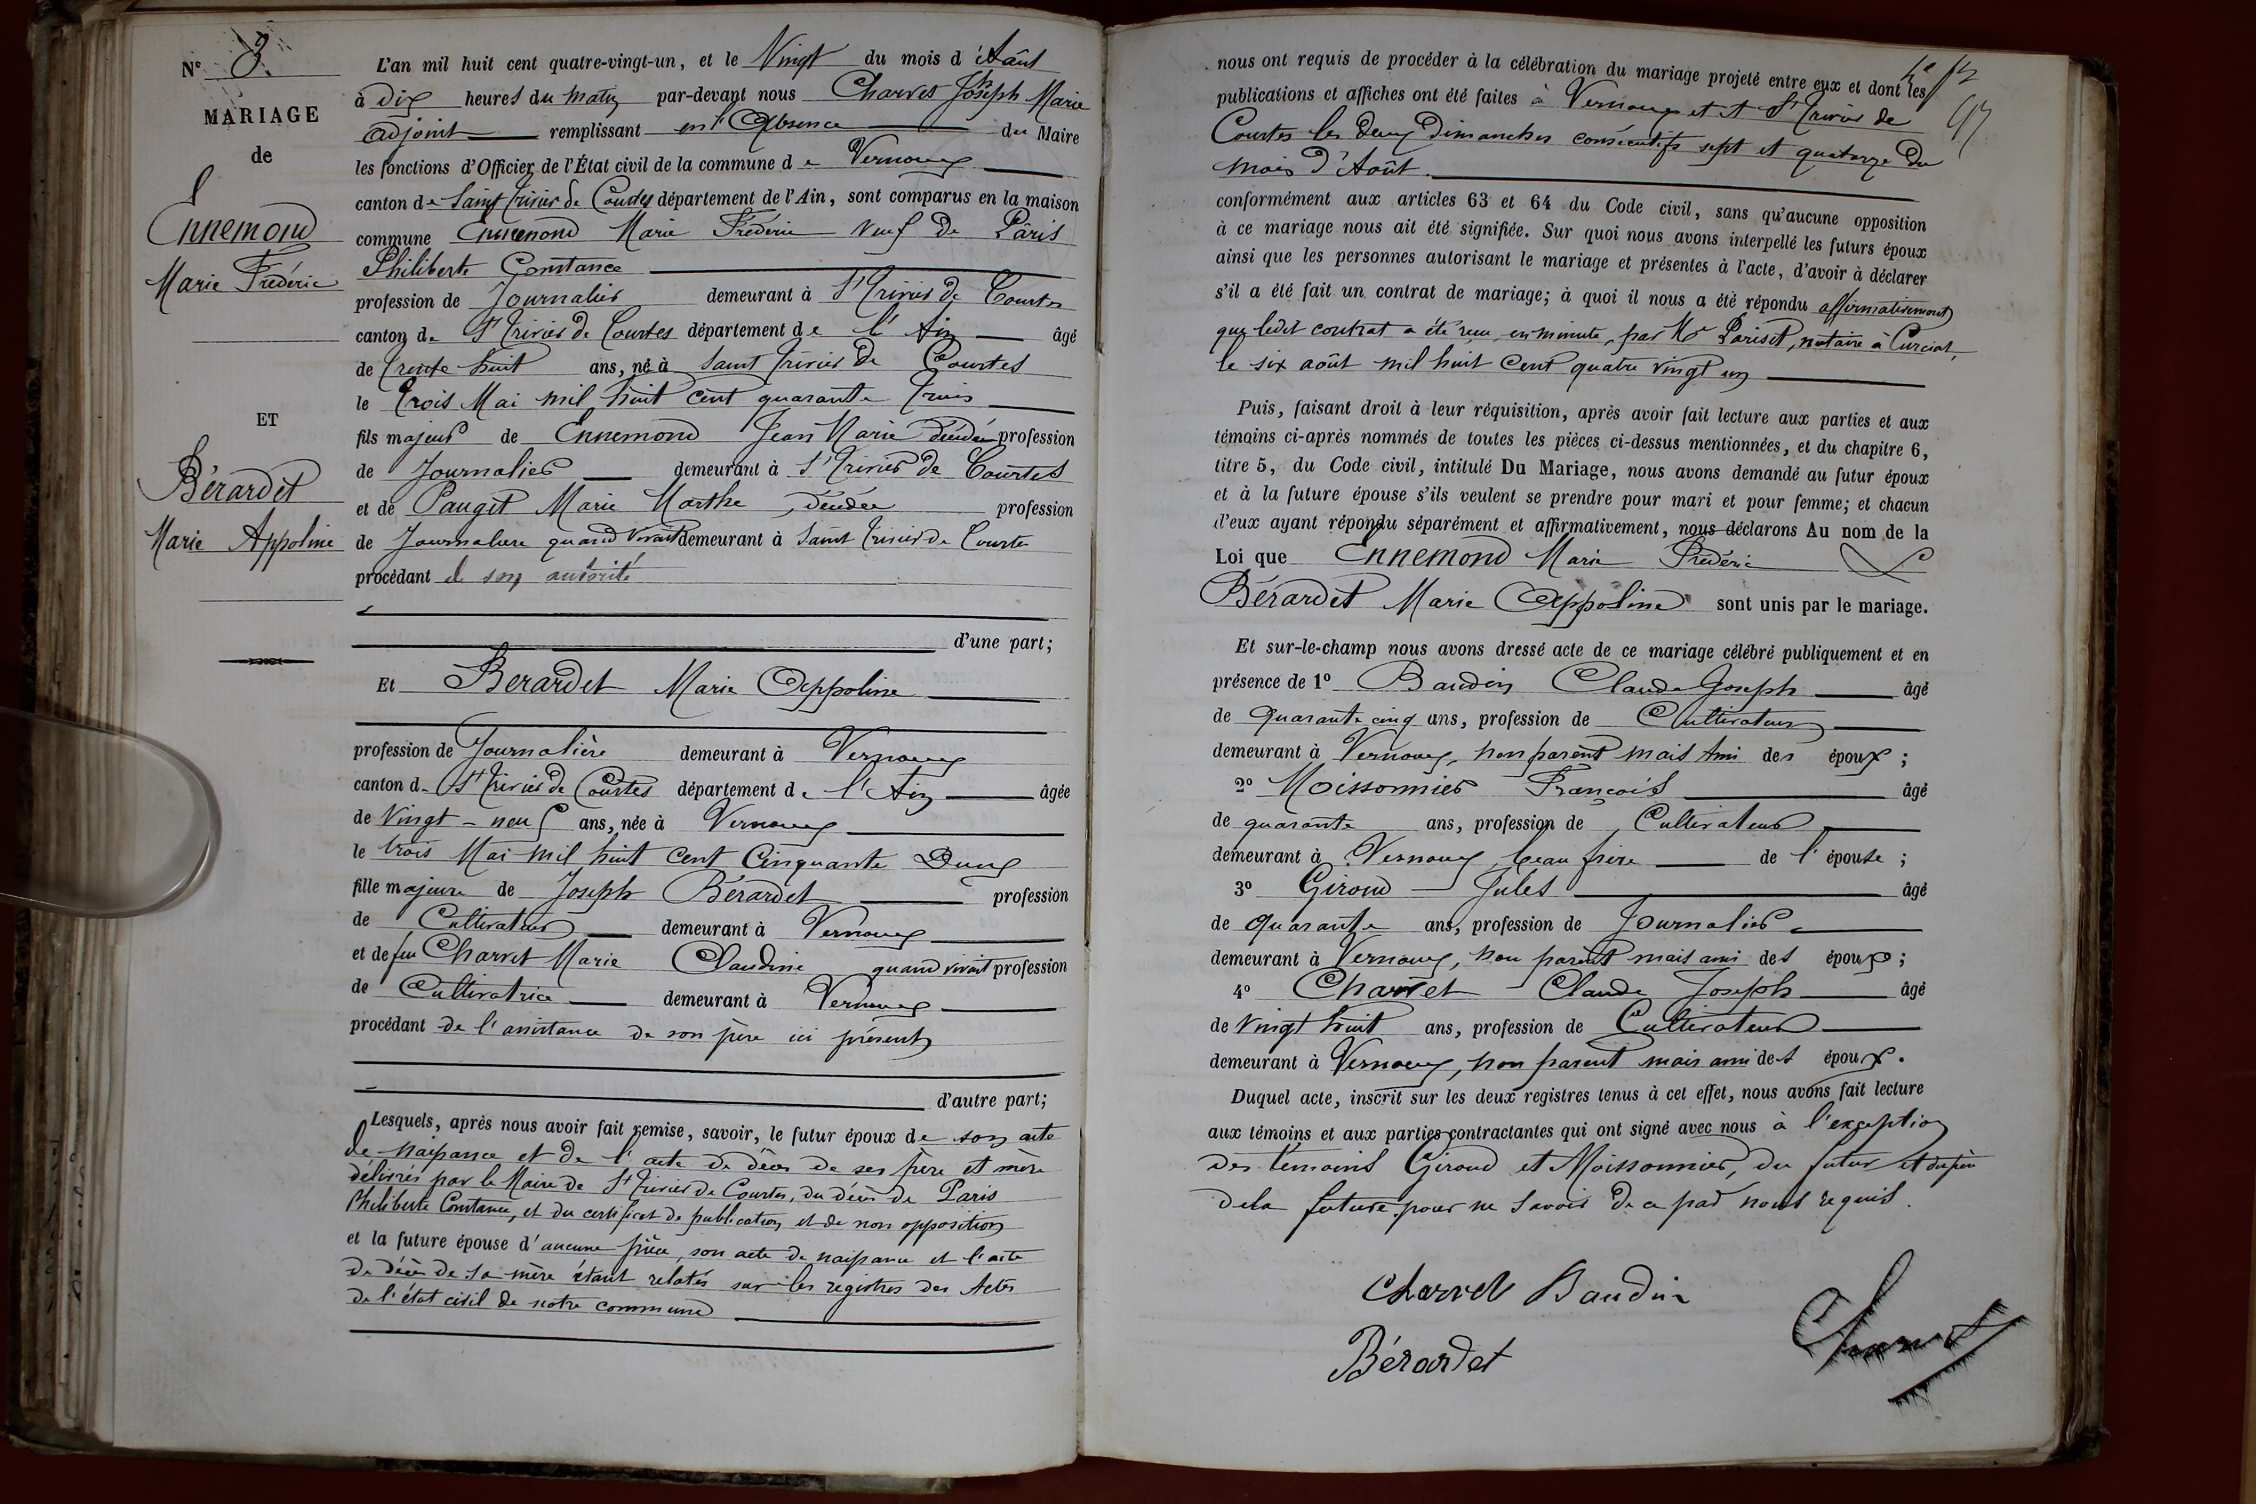 N° 3.
MARIAGE
de
Ennemond
Marie Frédéric
ET
Bérardet
Marie Appoline
L'an mil huit cent quatre-vingt-un, et le Vingt du mois d'Août
à Dix heures du matin par-devant nous Charvet Joseph Marie
adjoint remplissant en l'Absence du Maire
les fonctions d'Officier de l'État civil de la commune de Vernoux
canton de Saint Trivier de Courtes département de l'Ain, sont comparus en la maison
commune Ennemond Marie Frédéric veuf de Pâris
Philiberte Constance
profession de Journalier demeurant à St Trivier de Courtes
canton de St Trivier de Courtes département de l'Ain âgé
de trente huit ans, né à Saint Trivier de Courtes
le trois Mai mil huit cent quarante trois
fils majeur de Ennemond Jean Marie décédé profession
de Journalier demeurant à St Trivier de Courtes
et de Pauget Marie Marthe, décédée profession
de Journalière quand vivait demeurant à Saint Trivier de Courtes
procédant de son autorité
d'une part;
Et Berardet Marie Appoline
profession de Journalière demeurant à Vernoux
canton de St Trivier de Courtes département de l'Ain âgée
de Vingt-neuf ans, née à Vernoux
le trois Mai mil huit cent Cinquante Deux
fille majeure de Joseph Bérardet profession
de Cultivateur demeurant à Vernoux
et de feu Charvet Marie Claudine quand vivait profession
de Cultivatrice demeurant à Vernoux
procédant de l'assistance de son père ici présent
d'autre part;
Lesquels, après nous avoir fait remise, savoir, le futur époux de son acte
de naissance et de l'acte de décès de ses père et mère
délivrés par le Maire de St Trivier de Courtes, du décès de Paris
Philiberte Constance, et du certificat de publication et de non opposition
et la future épouse d'aucune pièce, son acte de naissance et l'acte
de décès de sa mère étant relatés sur les registres des Actes
de l'état civil de notre commune
nous ont requis de procéder à la célébration du mariage projeté entre eux et dont les
publications et affiches ont été faites à Vernoux et à St Trivier de
Courtes les deux Dimanches consécutifs sept et quatorze du
mois d'Août.
conformément aux articles 63 et 64 du Code civil, sans qu'aucune opposition
à ce mariage nous ait été signifiée. Sur quoi nous avons interpellé les futurs époux
ainsi que les personnes autorisant le mariage et présentes à l'acte, d'avoir à déclarer
s'il a été fait un contrat de mariage; à quoi il nous a été répondu affirmativement
que ledit contrat a été reçu en minute, par Me Pariset, notaire à Curciat,
le six août mil huit cent quatre vingt un
Puis, faisant droit à leur réquisition, après avoir fait lecture aux parties et aux
témoins ci-après nommés de toutes les pièces ci-dessus mentionnées, et du chapitre 6,
titre 5, du Code civil, intitulé Du Mariage, nous avons demandé au futur époux
et à la future épouse s'ils veulent se prendre pour mari et pour femme; et chacun
d'eux ayant répondu séparément et affirmativement, nous déclarons Au nom de la
Loi que Ennemond Marie Frédéric &
Bérardet Marie Appoline sont unis par le mariage.
Et sur-le-champ nous avons dressé acte de ce mariage célébré publiquement et en
présence de 1° Baudin Claude Joseph âgé
de quarante cinq ans, profession de Cultivateur
demeurant à Vernoux, non parent mais ami des époux;
2° Moissonnier François âgé
de quarante ans, profession de Cultivateur
demeurant à Vernoux, beau frère de l'épouse;
3° Giroud Jules âgé
de quarante ans, profession de Journalier
demeurant à Vernoux, non parent mais ami des époux;
4° Charvet Claude Joseph âgé
de Vingt huit ans, profession de Cultivateur
demeurant à Vernoux, non parent mais ami des époux.
Duquel acte, inscrit sur les deux registres tenus à cet effet, nous avons fait lecture
aux témoins et aux parties contractantes qui ont signé avec nous à l'exception
des témoins Giroud et Moissonnier, du futur et du père
de la future pour ne savoir de ce par nous requis.
Charvet Baudin
Bérardet
Charvet